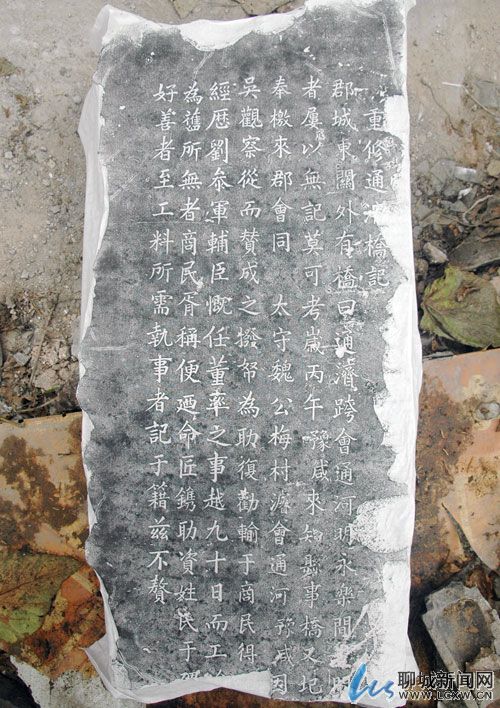 重修通濟橋記
郡城東關外有橋曰通濟跨會通河明永樂間
者屢以無記莫可考歲丙午豫咸來知縣事橋又圮
奉檄來郡會同 太守魏公梅村濬會通河豫咸因
吳觀察從而贊成之撥帑為助復勸輸于商民得
經歷劉叅軍輔臣慨任董率之事越九十日而工
為舊所無者商民胥稱便廼命匠鐫助資姓氏于
好善者至工料所需執事者記于籍茲不贅
聊城新聞网
WWW.LCXW.CN